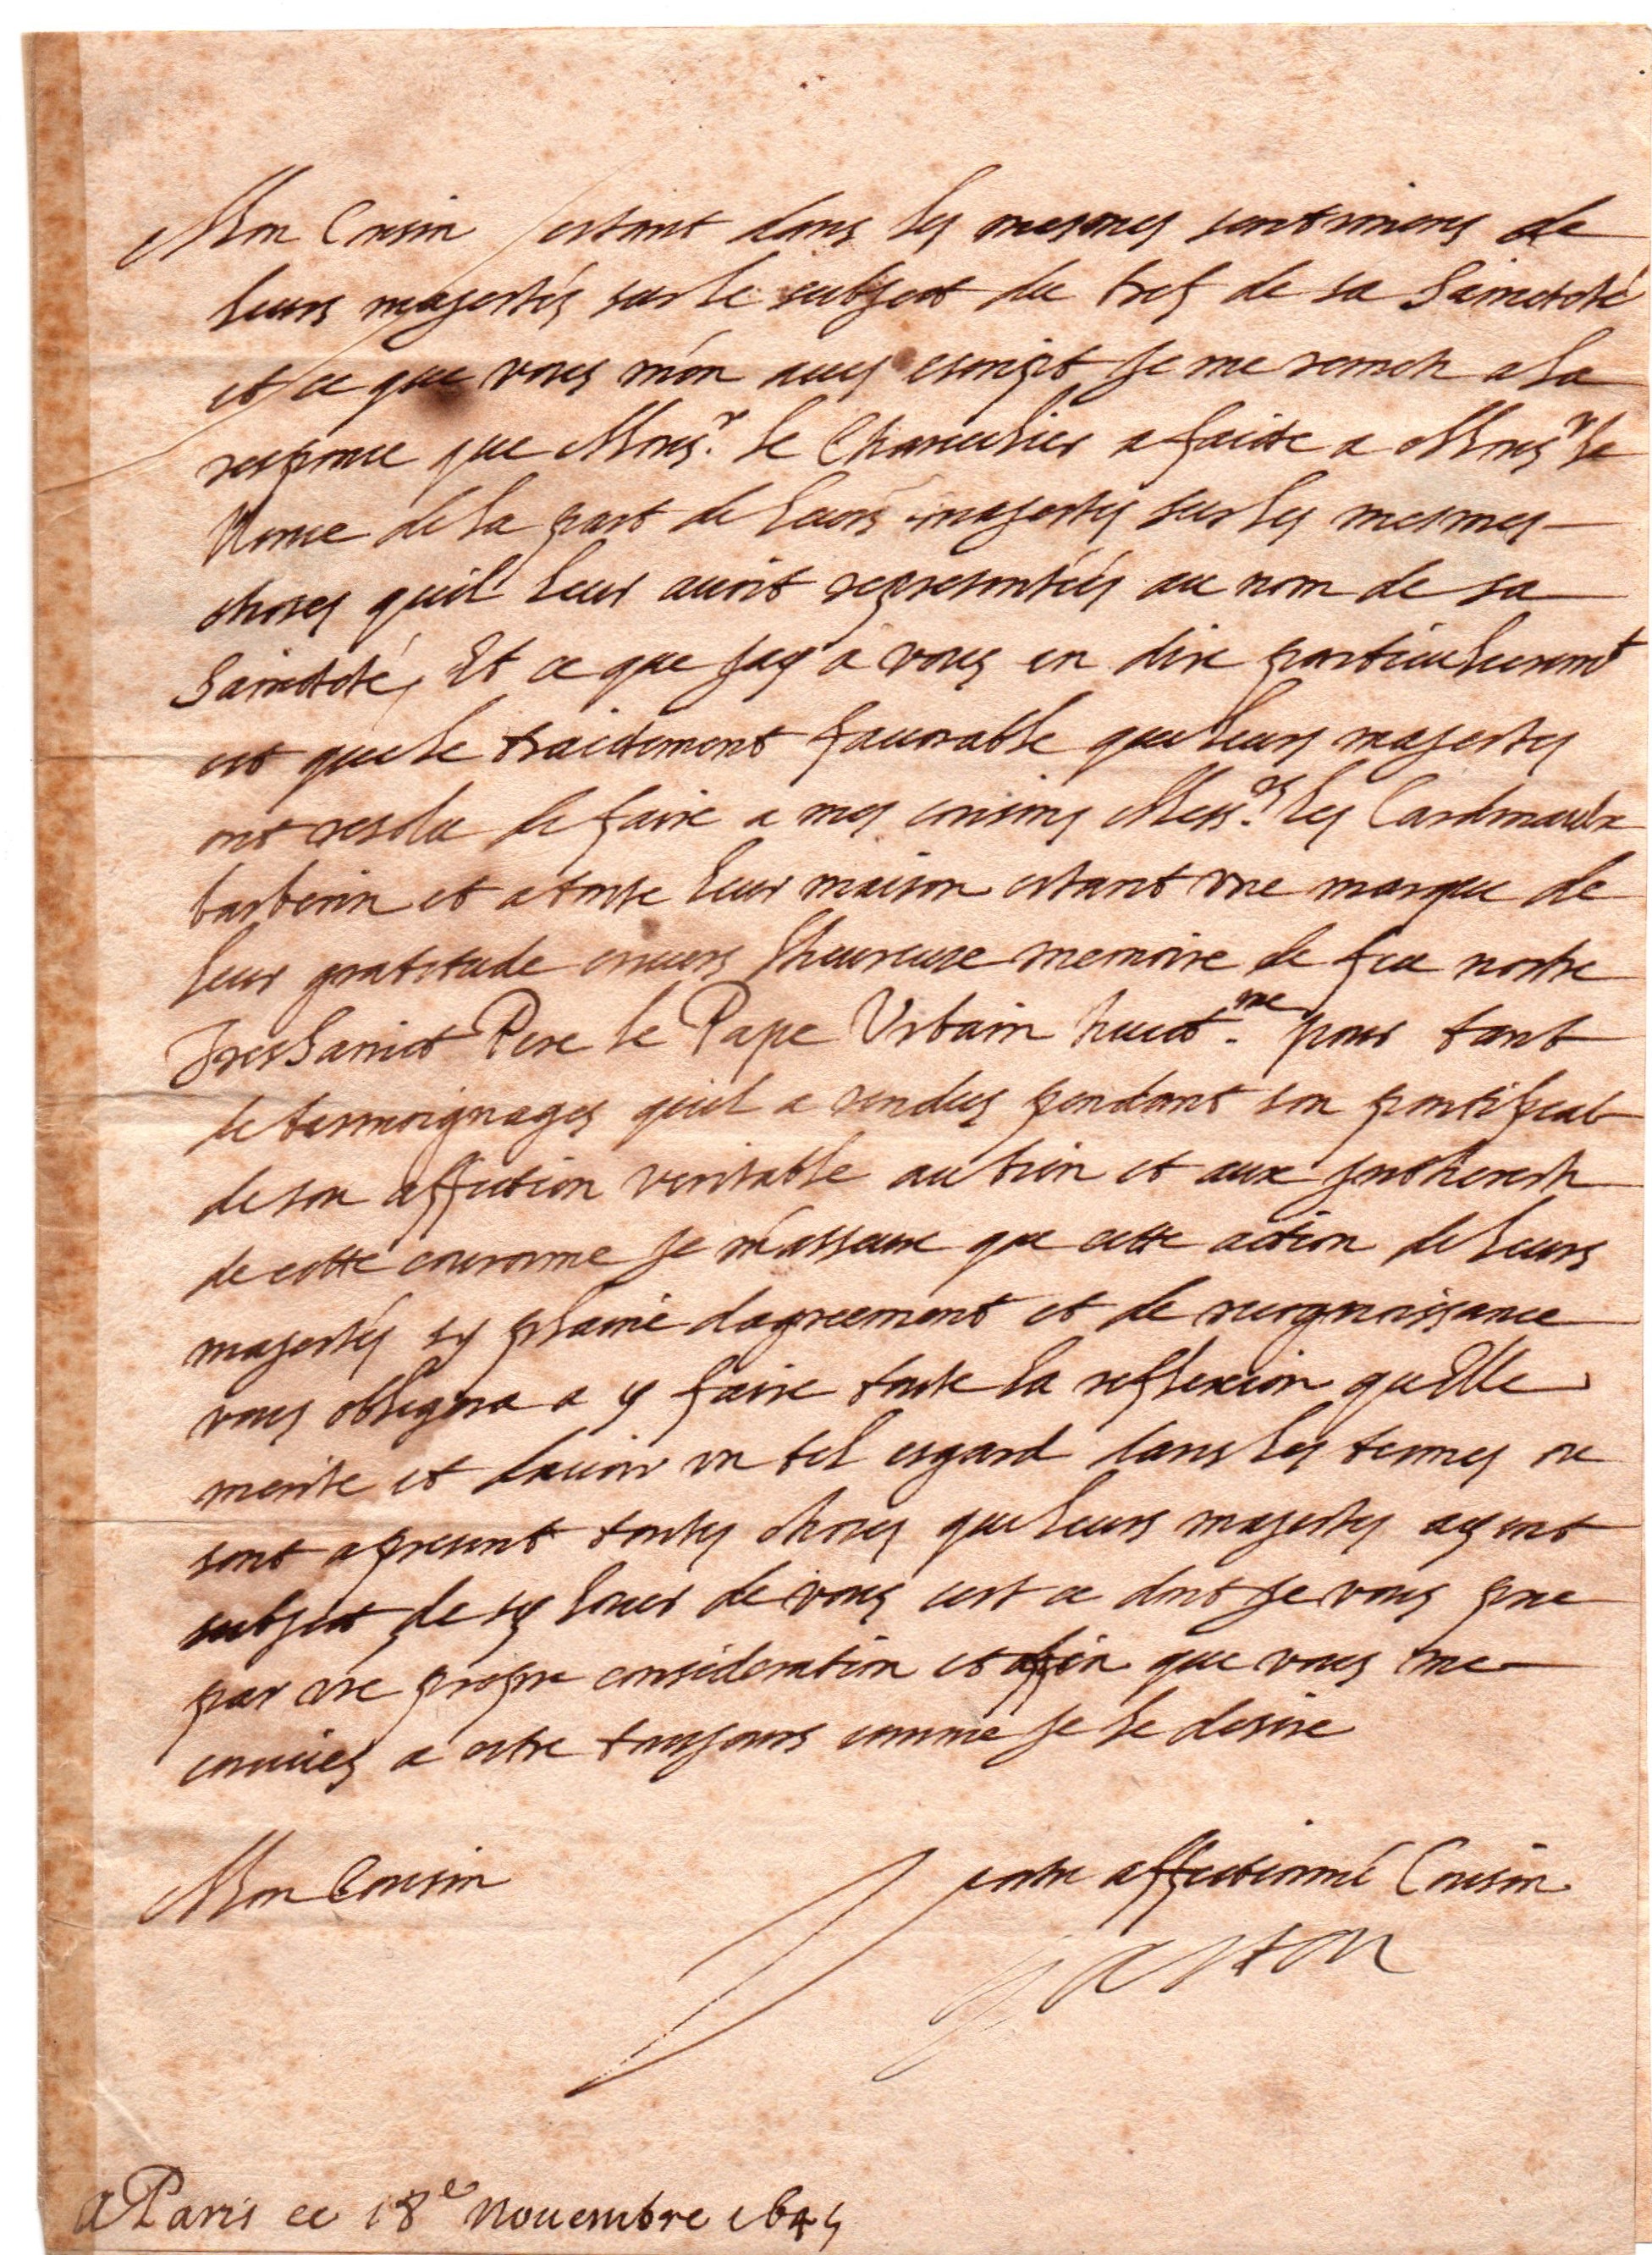 Mon Cousin estant dans les mesmes sentimens de
leurs majestés sur le subject du bref de sa Saincteté
et ce que vous m'en aues escript Je me remets a la
response que Monsr. le Chancelier a faicte a Monsr le
Nonce de la part de leurs majestes sur les mesmes
choses quil leur auoit representéés au nom de sa
Saincteté, Et ce que Jay a vous en dire particulierement
est que le traictement fauorable que leurs majestes
ont resolu de faire a mes cousins Messrs. les Cardinaulx
barberin et a toute leur maison estant vne marque de
leur gratitude enuers lheureuse memoire de feu nostre
Tres Sainct Pere le Pape Vrbain huict.me pour tant
de tesmoignages quil a rendus pendant son pontificat
de son affection veritable au bien et aux Inthereste
de cette couronne Je m'asseure que cette action de leurs
majestés sy plaine dagreement et de recognoissance
vous obligera a y faire toute la reflexion quElle
merite et dauoir vn tel esgard dans les termes ou
sont apresent toutes choses que leurs majestes ayent
subject de sy louer de vous cest ce dont Je vous prie
par vre propre consideration et affin que vous me
conuiés a estre tousjours comme Je le desire
Mon Cousin
vostre affectionné Cousin
Gaston
A Paris ce 18e Nouembre 1645